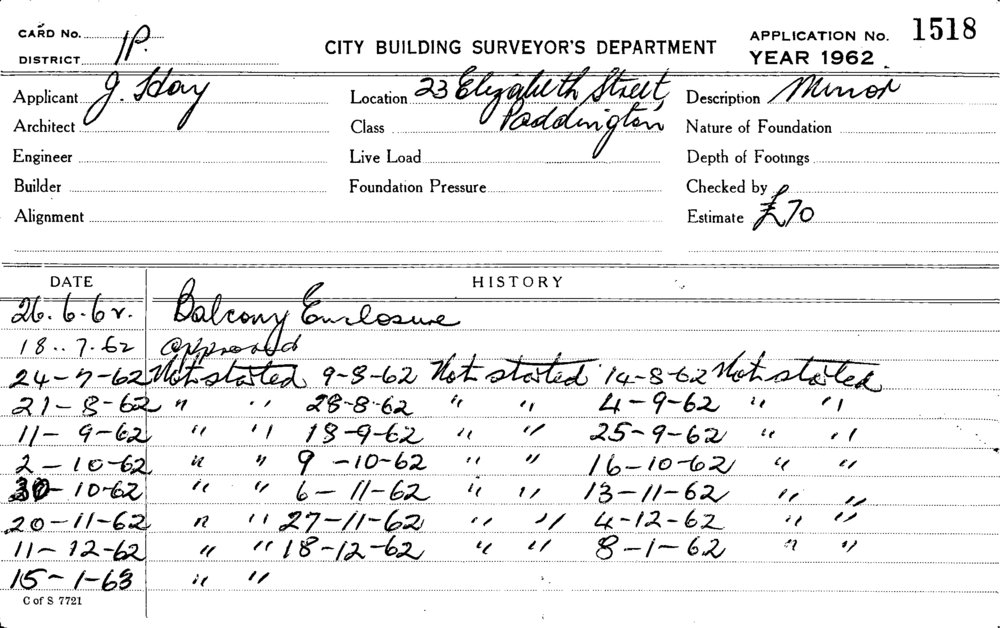 CARD No. 1P.
DISTRICT
CITY BUILDING SURVEYOR'S DEPARTMENT
APPLICATION No. 1518
YEAR 1962.
Applicant J. Hay Location 23 Elizabeth Street, Description Minor
Architect Class Paddington Nature of Foundation
Engineer Live Load Depth of Footings
Builder Foundation Pressure Checked by
Alignment Estimate £70
DATE HISTORY
26.6.62. Balcony Enclosure
18..7.62 approved
24-7-62 Not started 9-8-62 Not started 14-8-62 Not started
21-8-62 " " 28-8-62 " " 4-9-62 " "
11-9-62 " " 18-9-62 " " 25-9-62 " "
2-10-62 " " 9-10-62 " " 16-10-62 " "
30-10-62 " " 6-11-62 " " 13-11-62 " "
20-11-62 " " 27-11-62 " " 4-12-62 " "
11-12-62 " " 18-12-62 " " 8-1-62 " "
15-1-63 " "
C of S 7721